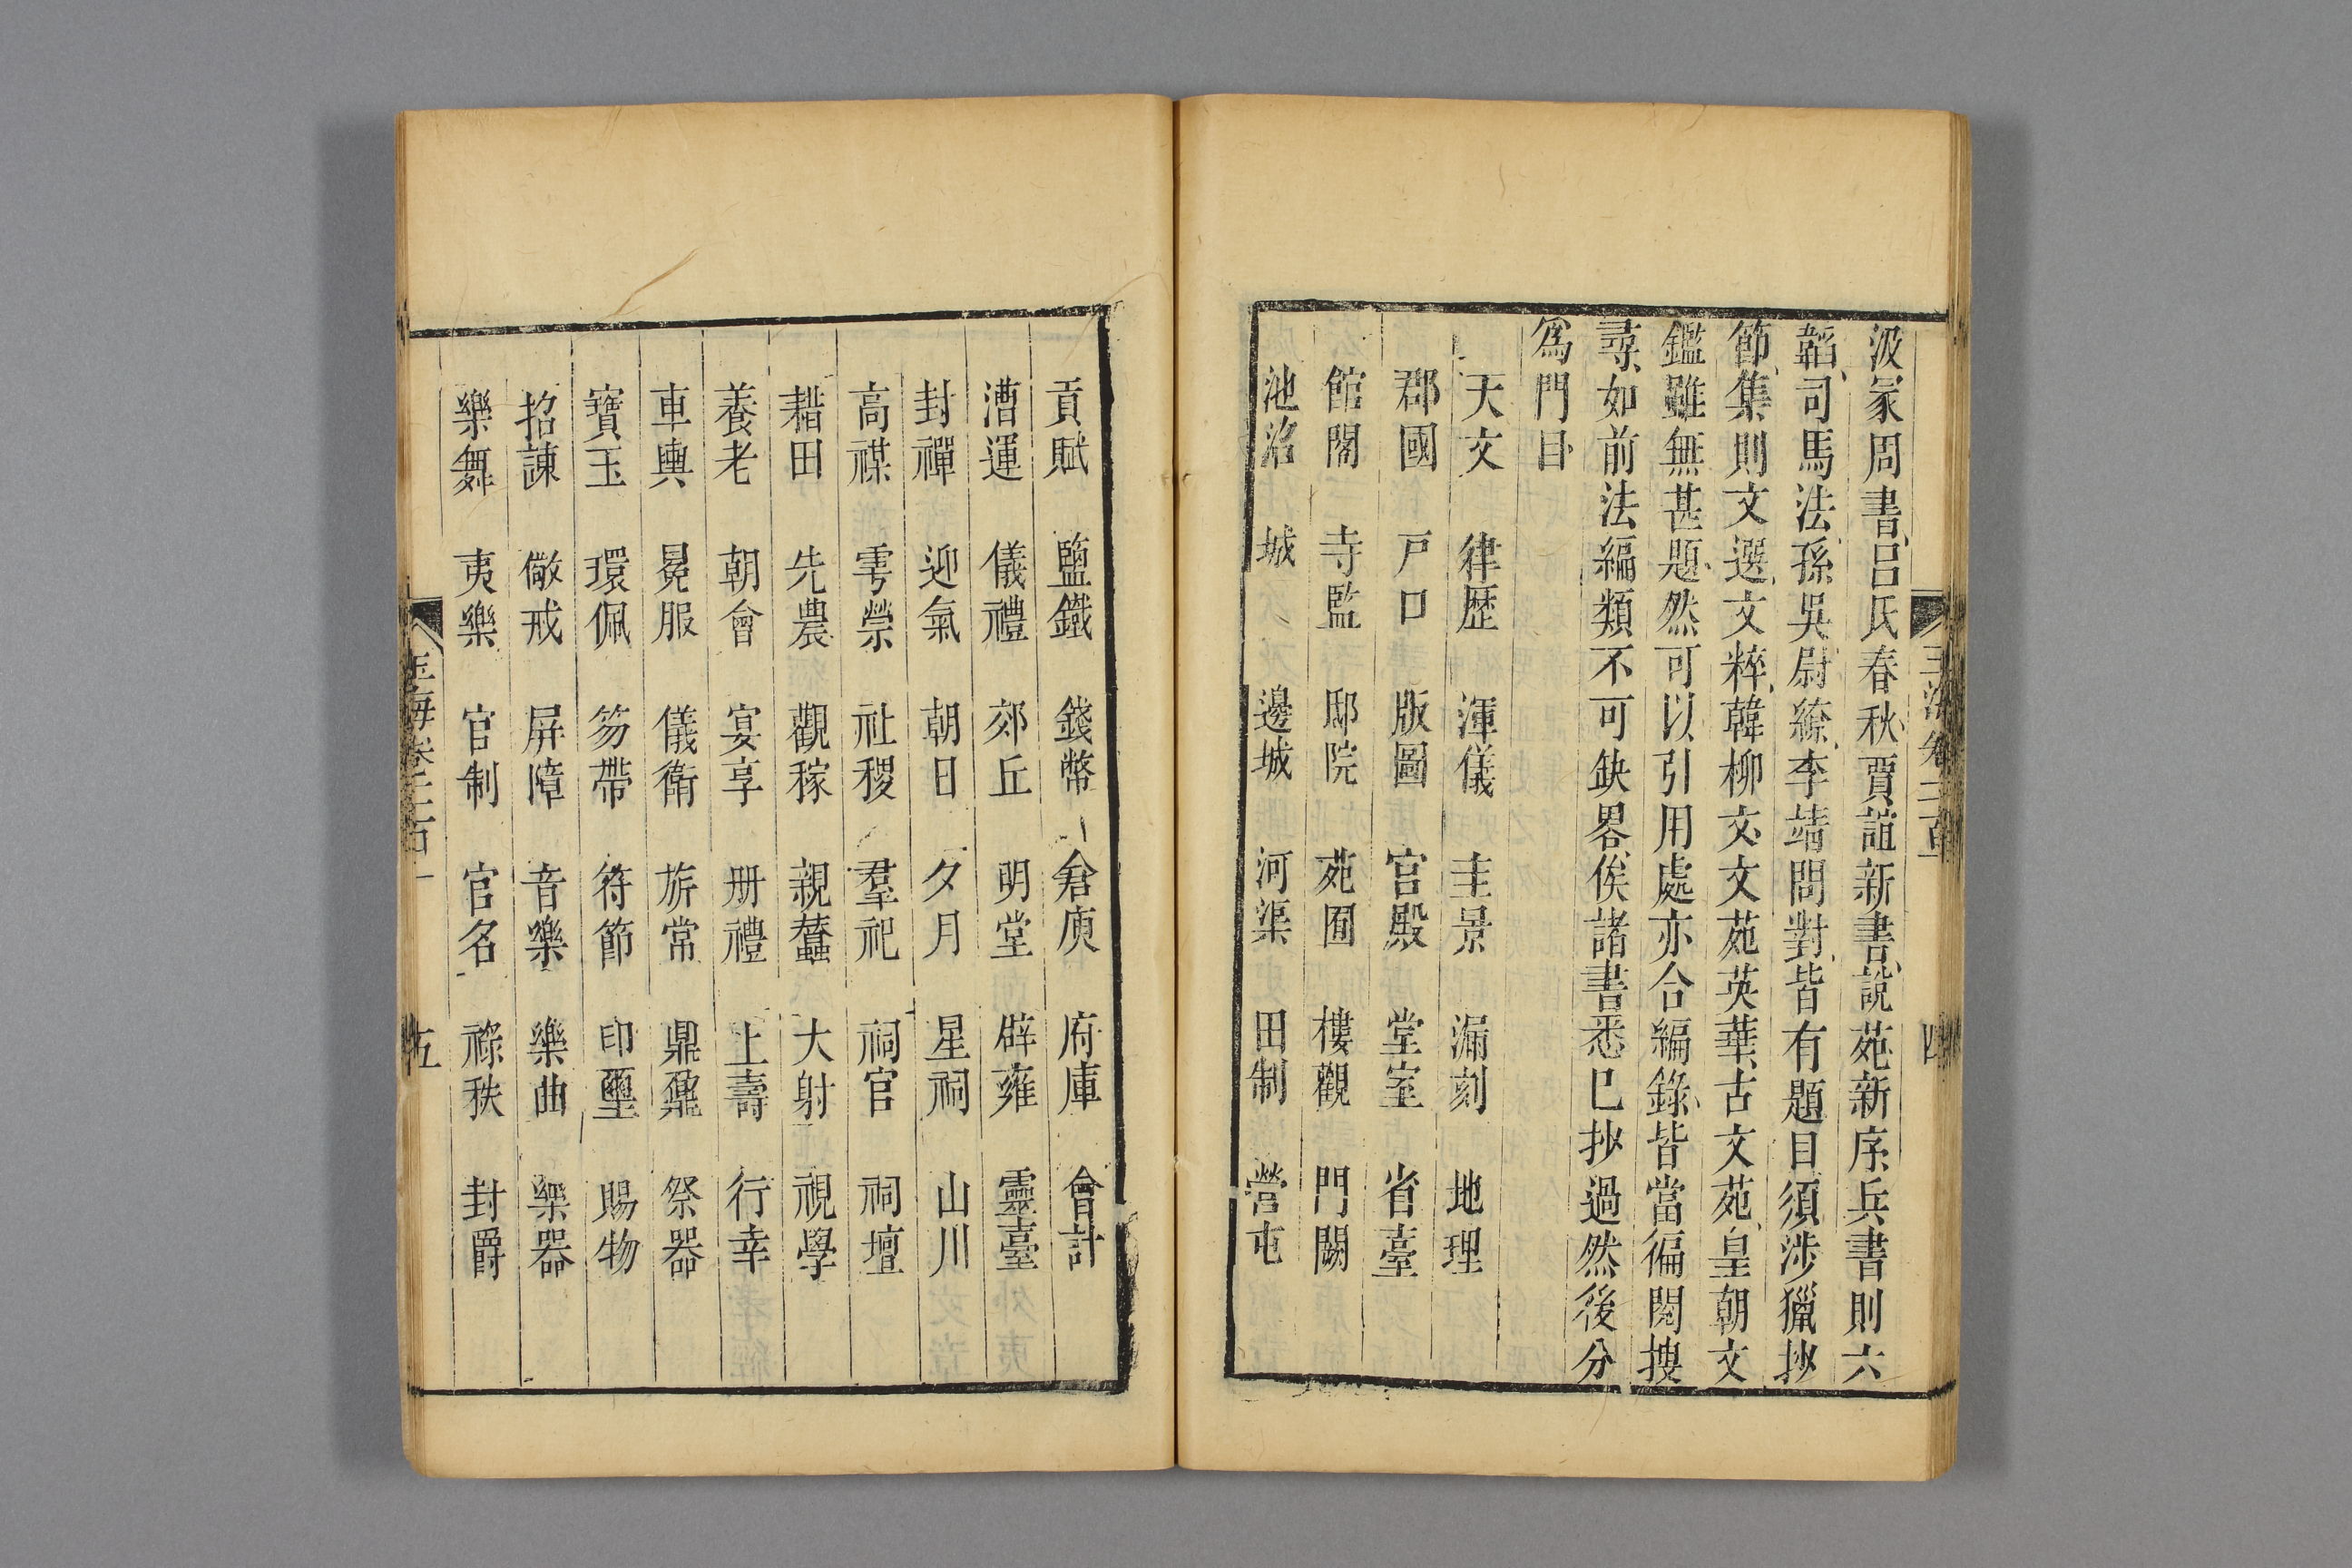 汲冢周書呂氏春秋賈誼新書說苑新序兵書則六
韜司馬法孫吳尉繚李靖問對皆有題目須涉獵抄
節集則文選文粹韓柳文文苑英華古文苑皇朝文
鑑雖無甚題然可以引用處亦合編錄皆當徧閱搜
尋如前法編類不可缺畧俟諸書悉已抄過然後分
爲門目
天文 律歷 渾儀 圭景 漏刻 地理
郡國 戸口 版圖 宮殿 堂室 省臺
館閣 寺監 邸院 苑囿 樓觀 門闕
池沼 城 邊城 河渠 田制 營屯
貢賦 鹽鐵 錢幣 倉庾 府庫 會計
漕運 儀禮 郊丘 明堂 辟雍 靈臺
封禪 迎氣 朝日 夕月 星祠 山川
高禖 雩禜 社稷 羣祀 祠官 祠壇
耤田 先農 觀稼 親蠶 大射 視學
養老 朝會 宴享 册禮 上壽 行幸
車輿 冕服 儀衛 旂常 鼎鼐 祭器
寶玉 環佩 笏帶 符節 印璽 賜物
招諫 儆戒 屏障 音樂 樂曲 樂器
樂舞 夷樂 官制 官名 祿秩 封爵
玉海卷二百一 五